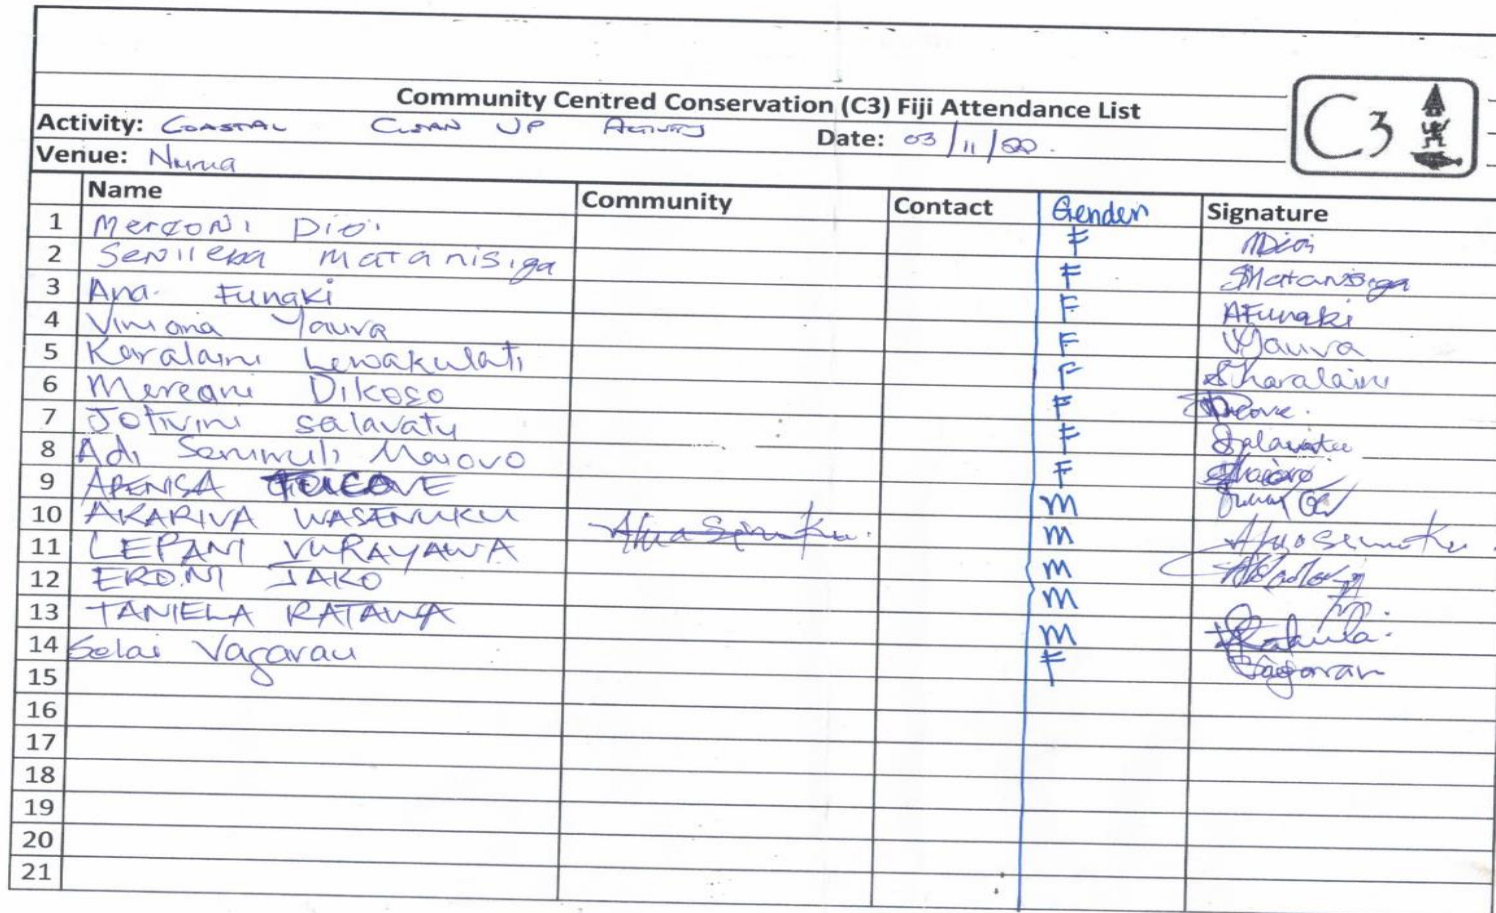 Community Centred Conservation (C3) Fiji Attendance List
C3
Activity: COASTAL CLEAN UP ACTIVITY Date: 03/11/20.
Venue:
Name Community Contact Gender Signature
1 Merconi Dioi F
2 Senileba Matanisiga F SMatanisiga
3 Ana. Funaki F AFunaki
4 Viniana Yauva F VYauva
5 Karalaini Lewakulati F
6 Mereani Dikoso F
7 Jotivini Salavatu F Salavatu
8 Adi Senimuli Maiovo F
9 APENISA M
10 AKARIVA WASENUKU M
11 LEPANI VURAYAWA M
12 ERONI JAKO M
13 TANIELA RATAWA M
14 Selai Vagarau F Vagarau
15
16
17
18
19
20
21